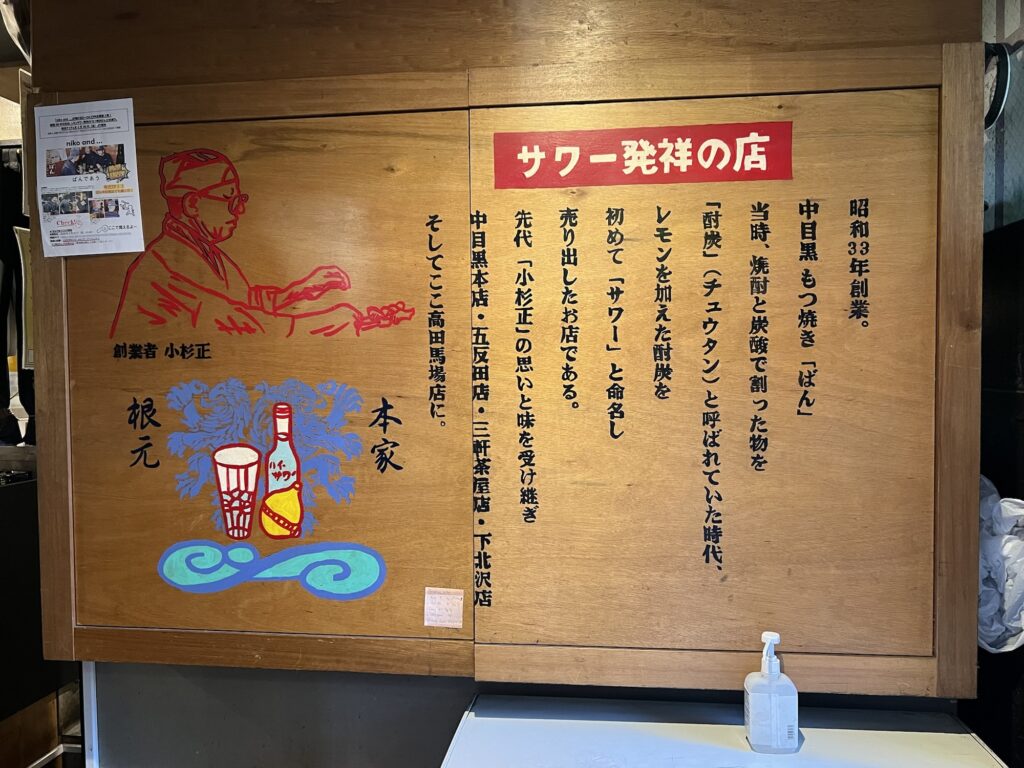 サワー発祥の店
昭和33年創業。
中目黒 もつ焼き「ばん」
当時、焼酎と炭酸で割った物を
「酎炭」（チュウタン）と呼ばれていた時代、
レモンを加えた酎炭を
初めて「サワー」と命名し
売り出したお店である。
先代「小杉正」の思いと味を受け継ぎ
中目黒本店・五反田店・三軒茶屋店・下北沢店
そしてここ高田馬場店に。
創業者 小杉正
本家
根元
ハイ
サワー
niko and ...
ばんであう